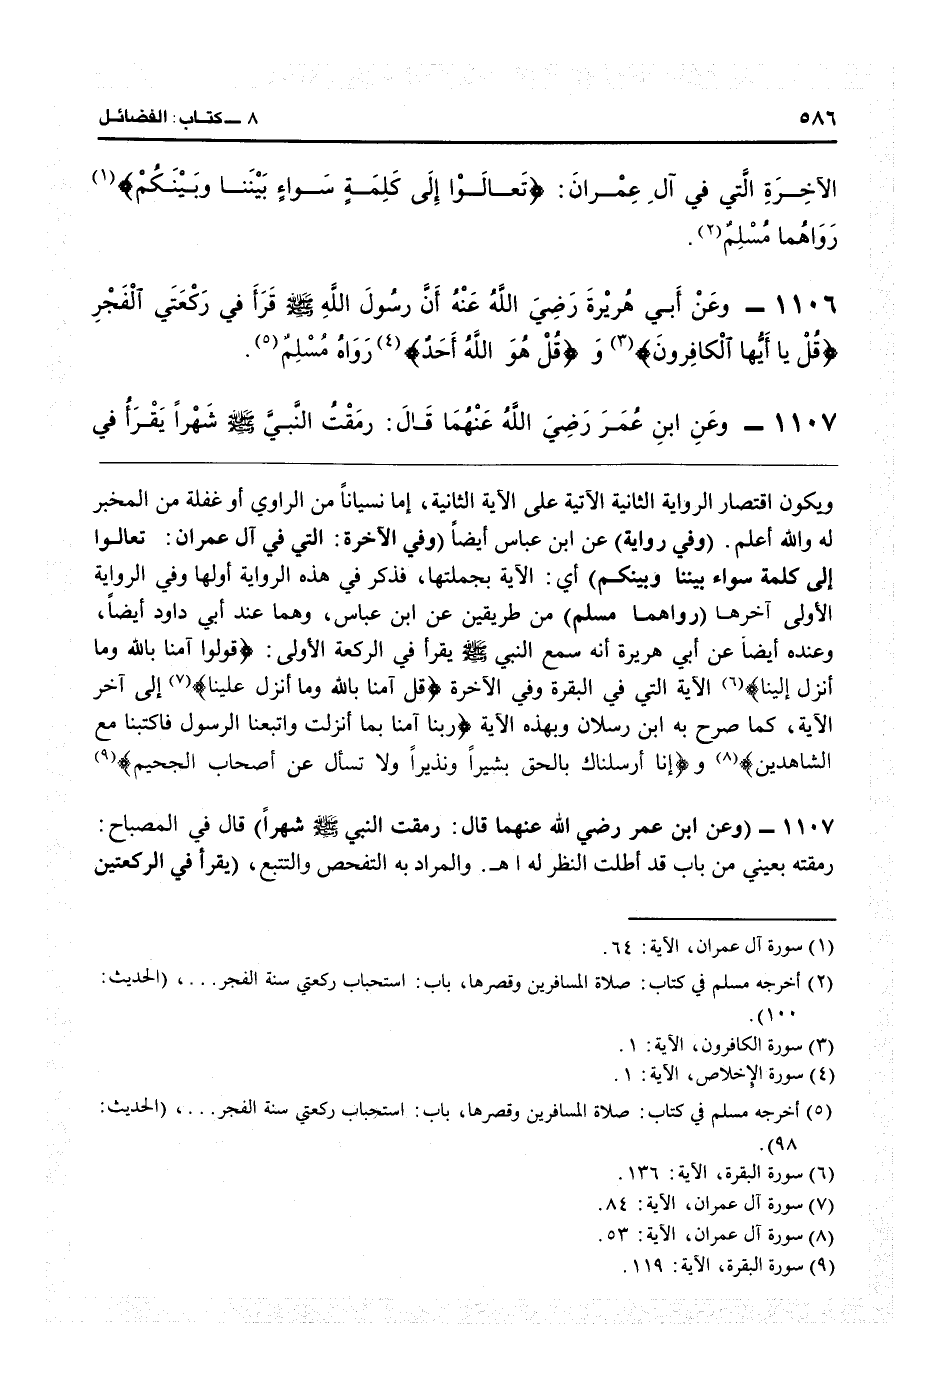 ٥٨٦
٨ ـ كتـاب: الفضائـل
الآخِـرَةِ الَّتي في آلِ عِمْـرانَ: ﴿تَعـالَـوْا إِلَى كَلِمَـةٍ سَـواءٍ بَيْنَنـا وبَيْنَكُمْ﴾(١)
رَوَاهُما مُسْلِمٌ(٢).
١١٠٦ ـ وعَنْ أَبـي هُرِيْرةَ رَضِيَ اللَّهُ عَنْهُ أَنَّ رسُولَ اللَّهِ ﷺ قَرَأَ في رَكْعَتَي ٱلْفَجْرِ
﴿قُلْ يا أَيُّها ٱلْكافِرونَ﴾(٣) وَ ﴿قُلْ هُوَ اللَّهُ أَحَدٌ﴾(٤) رَوَاهُ مُسْلِمٌ(٥).
١١٠٧ ـ وعَنِ ابنِ عُمَـرَ رَضِيَ اللَّهُ عَنْهُمَا قَـالَ: رمَقْتُ النَّبـيَّ ﷺ شَهْراً يَقْـرَأُ في
ويكون اقتصار الرواية الثانية الآتية على الآية الثانية، إما نسياناً من الراوي أو غفلة من المخبر
له والله أعلم. (وفي رواية) عن ابن عباس أيضاً (وفي الآخرة: التي في آل عمران: تعالـوا
إلى كلمة سواء بيننا وبينكـم) أي: الآية بجملتها، فذكر في هذه الرواية أولها وفي الرواية
الأولى آخرهـا (رواهمـا مسلم) من طريقين عن ابن عباس، وهما عند أبي داود أيضاً،
وعنده أيضاً عن أبي هريرة أنه سمع النبي ﷺ يقرأ في الركعة الأولى: ﴿قولوا آمنا بالله وما
أنزل إلينا﴾(٦) الآية التي في البقرة وفي الآخرة ﴿قل آمنا بالله وما أنزل علينا﴾(٧) إلى آخر
الآية، كما صرح به ابن رسلان وبهذه الآية ﴿ربنا آمنا بما أنزلت واتبعنا الرسول فاكتبنا مع
الشاهدين﴾(٨) و﴿إنا أرسلناك بالحق بشيراً ونذيراً ولا تسأل عن أصحاب الجحيم﴾(٩)
١١٠٧ ـ (وعن ابن عمر رضي الله عنهما قال: رمقت النبي ﷺ شهراً) قال في المصباح:
رمقته بعيني من باب قد أطلت النظر له ا هـ. والمراد به التفحص والتتبع، (يقرأ في الركعتين
(١) سورة آل عمران، الآية: ٦٤.
(٢) أخرجه مسلم في كتاب: صلاة المسافرين وقصرها، باب: استحباب ركعتي سنة الفجر...، (الحديث:
١٠٠).
(٣) سورة الكافرون، الآية: ١.
(٤) سورة الإخلاص، الآية: ١.
(٥) أخرجه مسلم في كتاب: صلاة المسافرين وقصرها، باب: استحباب ركعتي سنة الفجر...، (الحديث:
٩٨).
(٦) سورة البقرة، الآية: ١٣٦.
(٧) سورة آل عمران، الآية: ٨٤.
(٨) سورة آل عمران، الآية: ٥٣.
(٩) سورة البقرة، الآية: ١١٩.